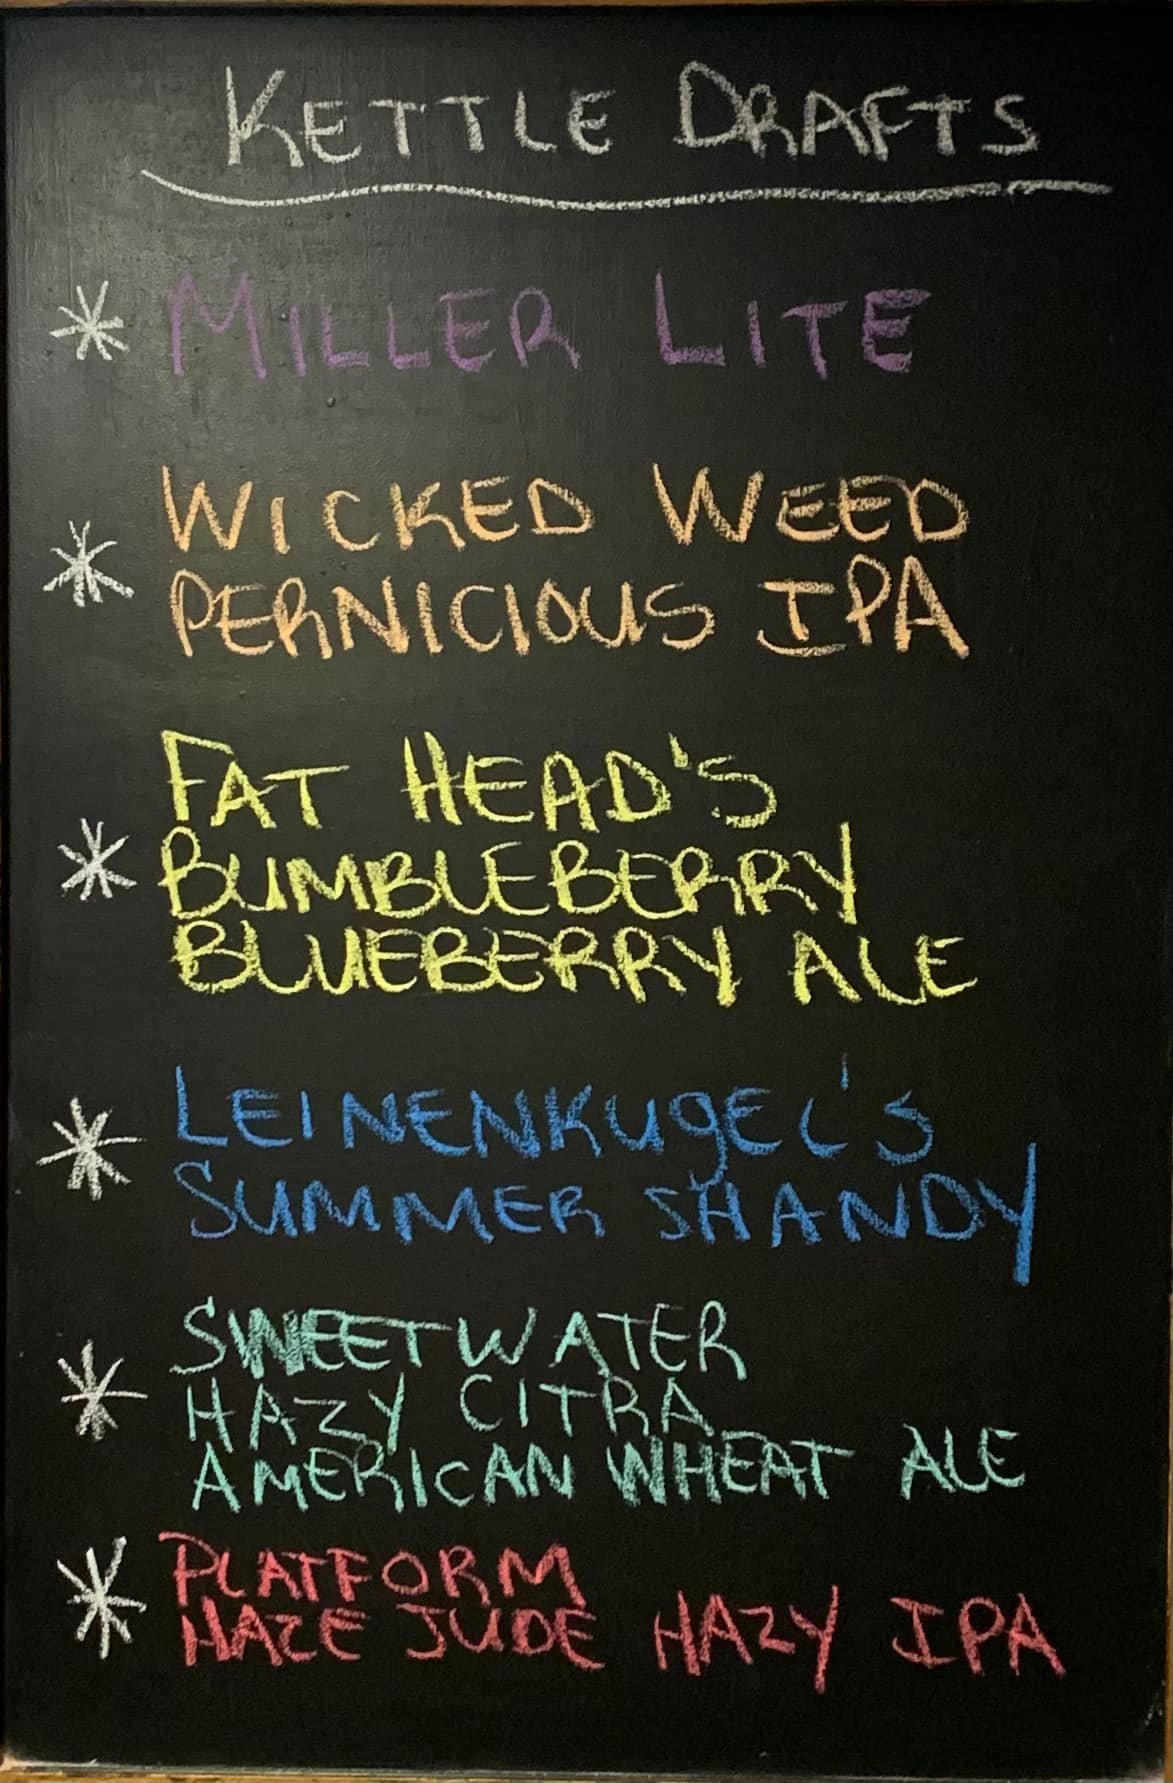 KETTLE DRAFTS
* MILLER LITE
* WICKED WEED
PERNICIOUS IPA
* FAT HEAD'S
BUMBLEBERRY
BLUEBERRY ALE
* LEINENKUGEL'S
SUMMER SHANDY
* SWEETWATER
HAZY CITRA
AMERICAN WHEAT ALE
* PLATFORM
HAZE JUDE HAZY IPA